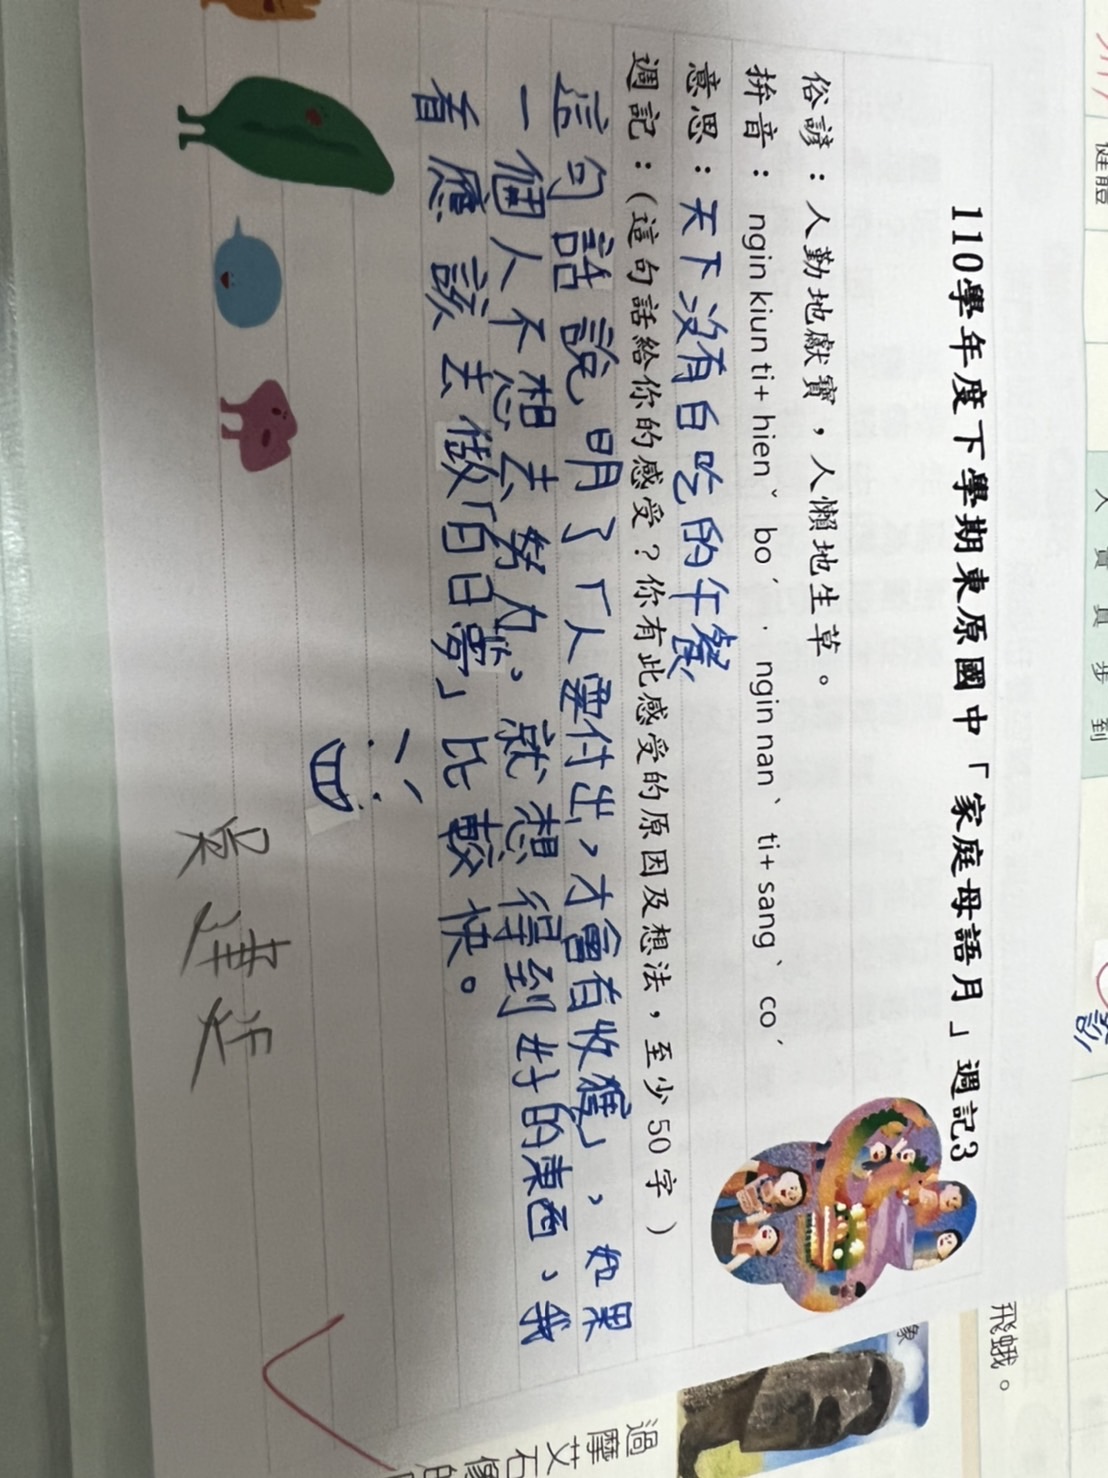 110學年度下學期東原國中「家庭母語月」週記3
俗諺：人勤地獻寶，人懶地生草。
拚音： ngin kiun ti+ hienˇ boˊ．nginnanˋ ti+ sangˋ coˊ
意思：天下沒有白吃的午餐
週記：(這句話給你的感受？你有此感受的原因及想法，至少50字)
這句話說明了「人要付出，才會有收獲」，如果
一個人不想去努力，就想得到好的東西，我
看應該去做「白日夢」比較快。
飛蛾。
象
過
摩艾石像
健體
人賁員步到